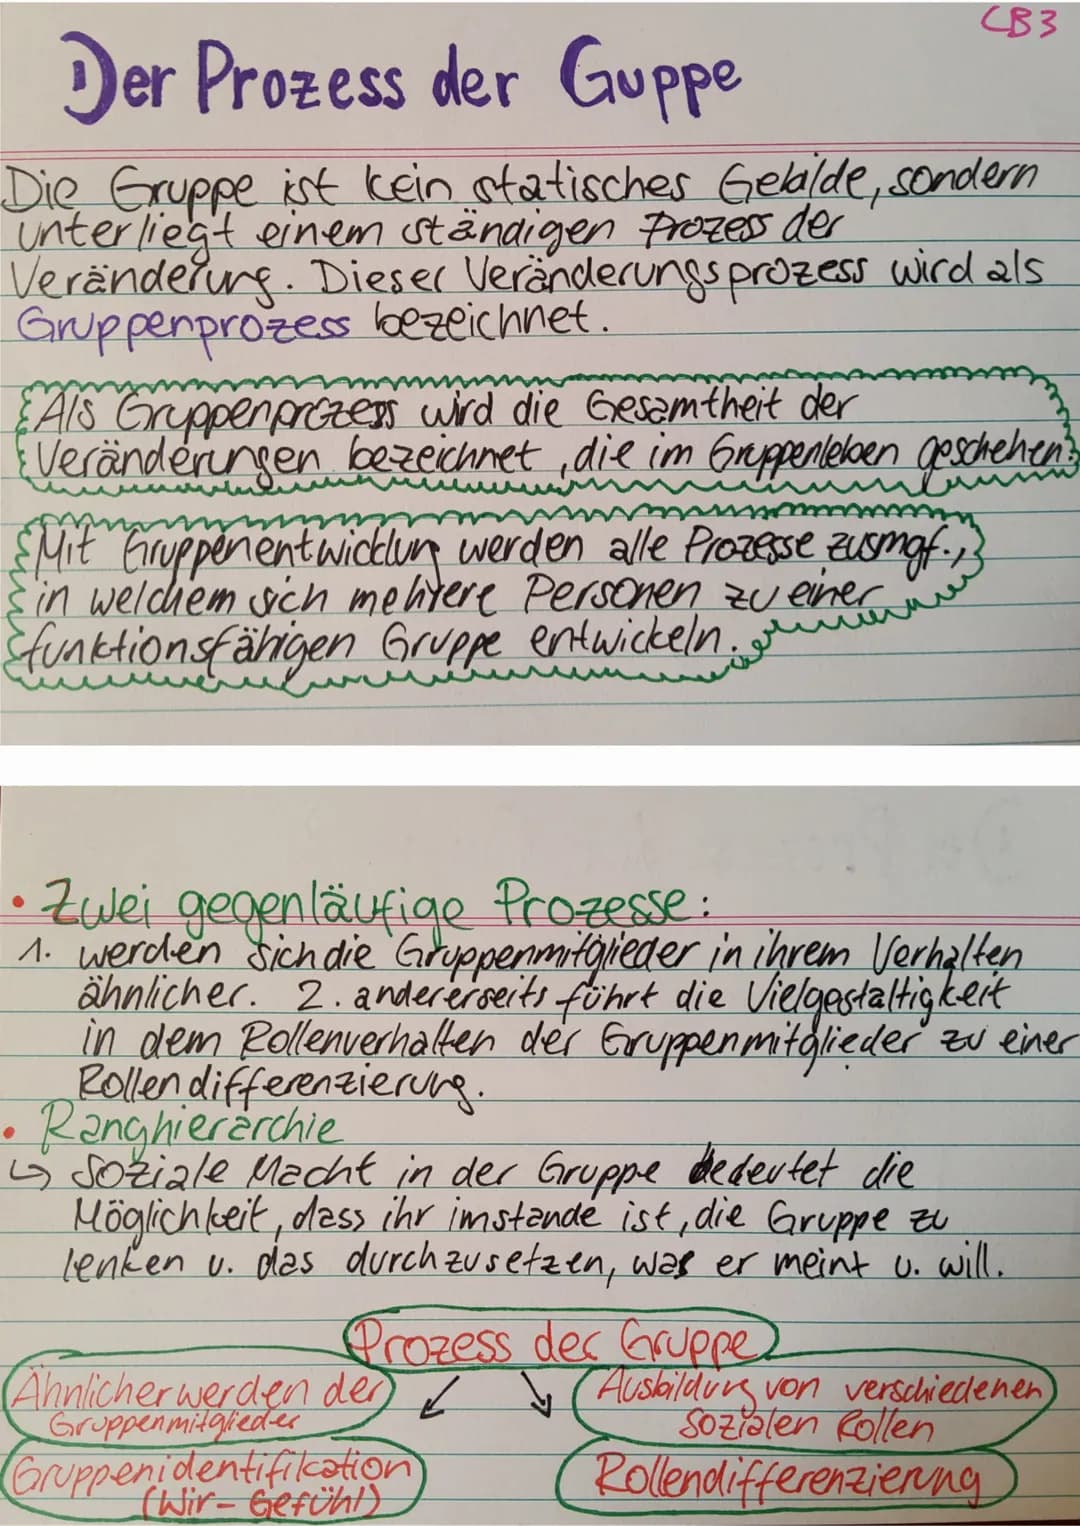 CB3
Der Prozess der Guppe
Die Gruppe ist kein statisches Gebilde, sondern
unterliegt einem ständigen Prozess der
Veränderung. Dieser Veränderungsprozess wird als
Gruppenprozess bezeichnet.
Als Gruppenprozess wird die Gesamtheit der
Veränderungen bezeichnet, die im Gruppenleben geschehen.
Mit Gruppenentwicklung werden alle Prozesse zusmgf.,
in welchem sich mehrere Personen zu einer
funktionsfähigen Gruppe entwickeln.
• Zwei gegenläufige Prozesse:
1. werden sich die Gruppenmitglieder in ihrem Verhalten
ähnlicher. 2. andererseits führt die Vielgestaltigkeit
in dem Rollenverhalten der Gruppenmitglieder zu einer
Rollendifferenzierung.
• Ranghierarchie
↳ Soziale Macht in der Gruppe bedeutet die
Möglichkeit, dass ihr imstande ist, die Gruppe zu
lenken u. das durchzusetzen, was er meint u. will.
Prozess der Gruppe
Ähnlicherwerden der
Gruppenmitglieder
Gruppenidentifikation
(Wir-Gefühl)
Ausbildung von verschiedenen
sozialen Rollen
Rollendifferenzierung